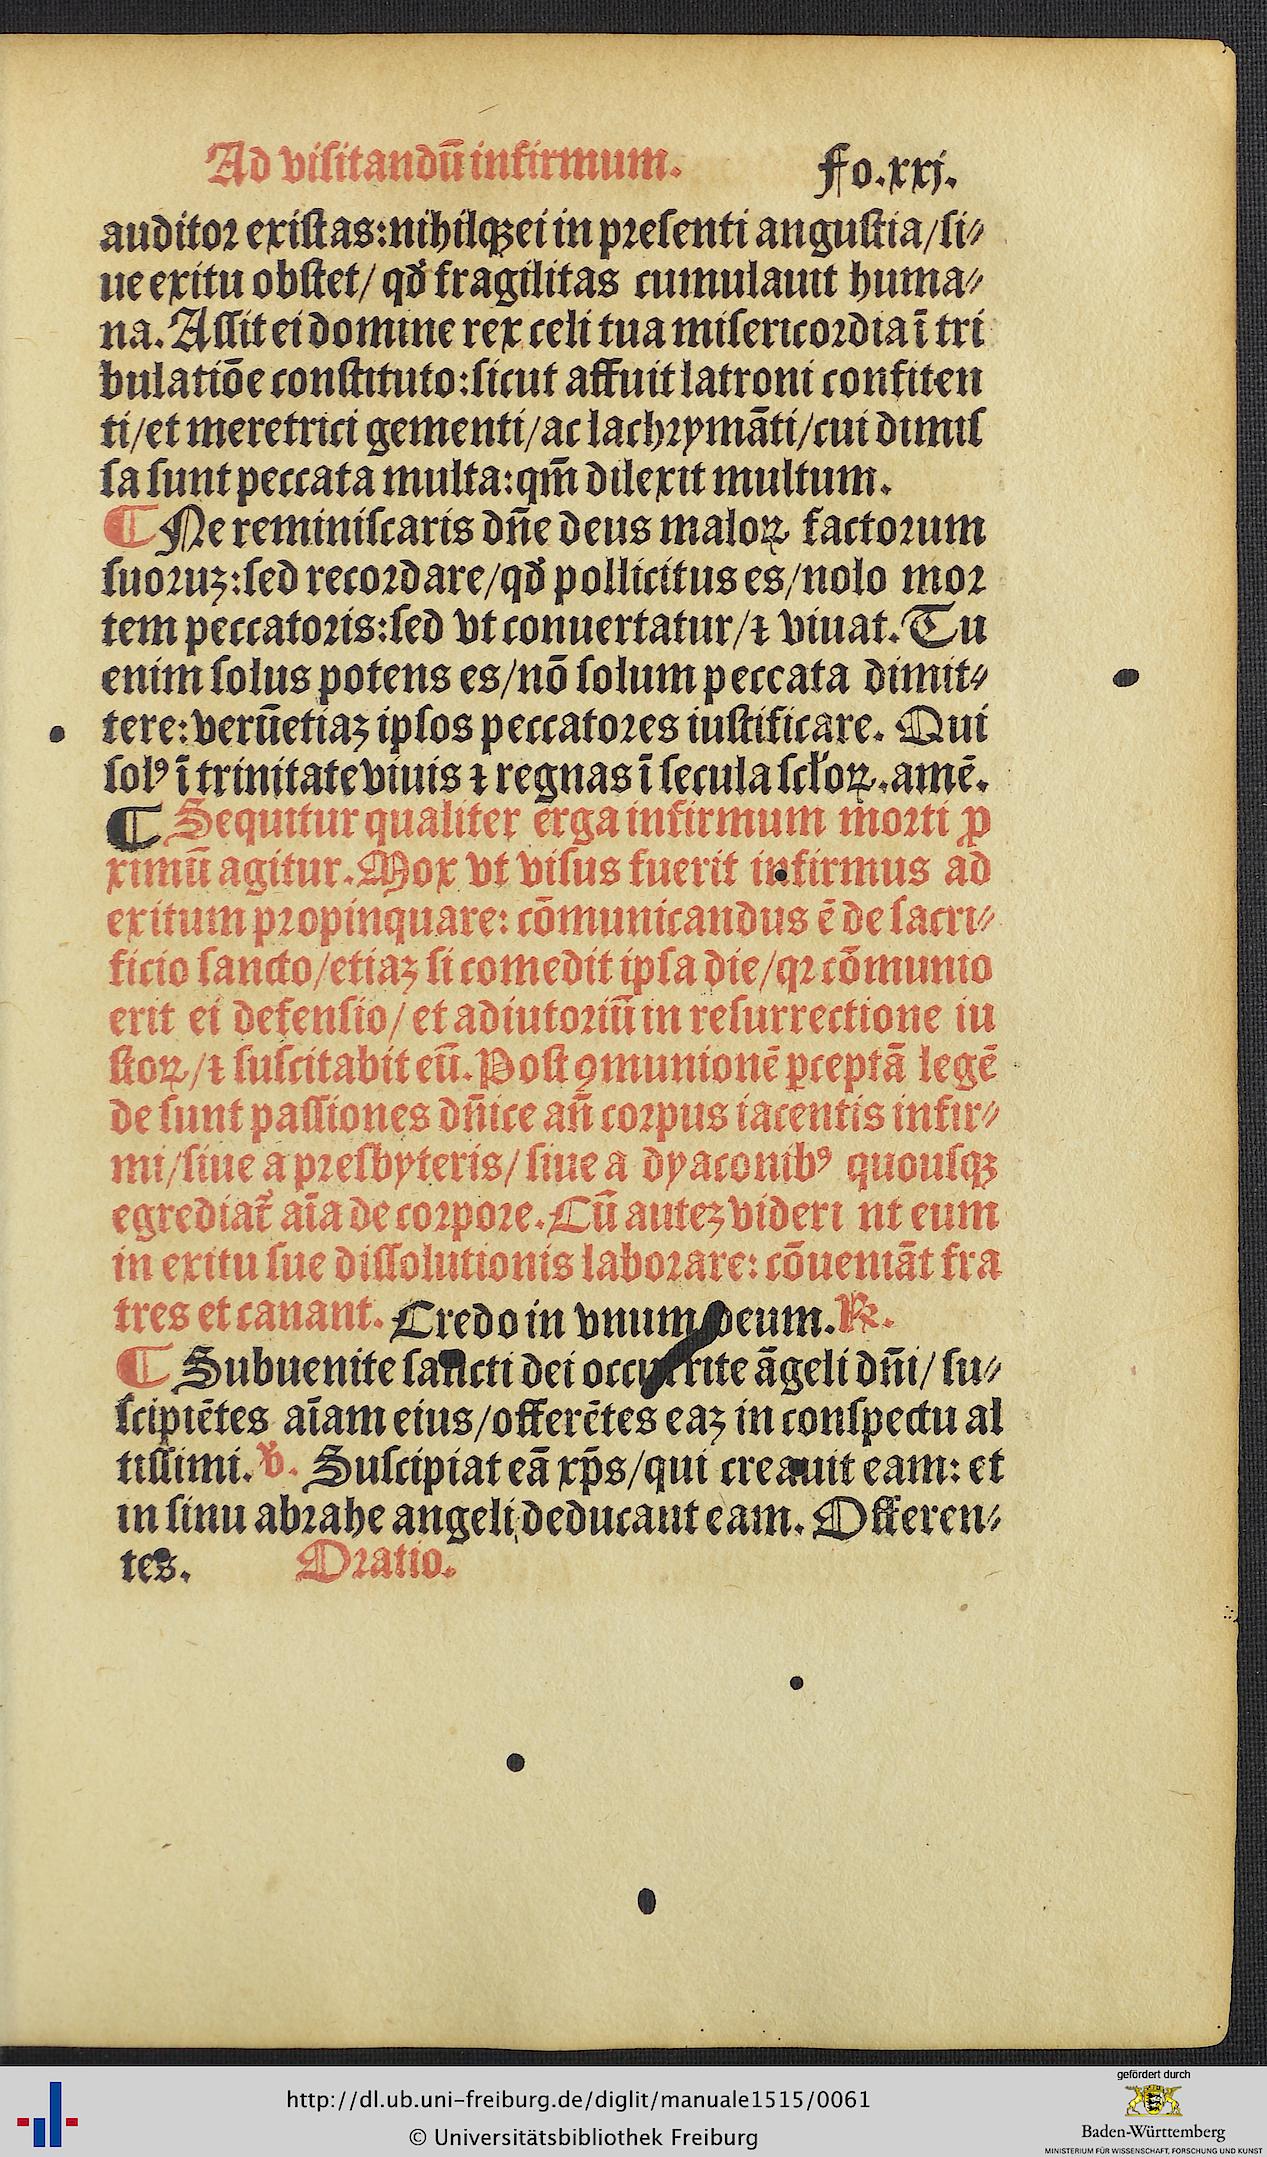 Ad viſitandū infirmum. Fo.xxj.
auditoꝛ exiſtas:nihilqꝫ ei in pꝛeſenti anguſtia/ſi⸗
ue exitu obſtet/ qđ fragilitas cumulauit huma⸗
na. Aſſit ei domine rex celi tua miſericoꝛdia ī tri
bulatiōe conſtituto:ſicut affuit latroni confiten
ti/et meretrici gementi/ac lachꝛymāti/cui dimiſ
ſa ſunt peccata multa:qm̄ dilexit multum.
¶ Ne reminiſcaris dn̄e deus maloꝝ factoꝛum
ſuoꝛuꝫ:ſed recoꝛdare/qđ pollicitus es/nolo moꝛ
tem peccatoꝛis:ſed vt conuertatur/⁊ viuat. Tu
enim ſolus potens es/nō ſolum peccata dimit⸗
tere:verūetiaꝫ ipſos peccatoꝛes iuſtificare. Qui
ſolꝰ ī trinitate viuis ⁊ regnas ī ſecula ſcl̓oꝝ.amē.
¶ Sequitur qualiter erga infirmum moꝛti ꝓ
ximū agitur. Mox vt viſus fuerit infirmus ad
exitum pꝛopinquare: cōmunicandus ē de ſacri⸗
ficio ſancto/etiaꝫ ſi comedit ipſa die/qꝛ cōmunio
erit ei defenſio/ et adiutoꝛiū in reſurrectione iu
ſtoꝝ/⁊ ſuſcitabit eū. Poſt ꝯmunionē ꝑceptā legē
de ſunt paſſiones dn̄ice an̄ coꝛpus iacentis infir⸗
mi/ſiue a pꝛeſbyteris/ ſiue a dyaconibꝰ quouſqꝫ
egrediat᷑ aīa de coꝛpoꝛe. Cū auteꝫ videri nt eum
in exitu ſue diſſolutionis laboꝛare: cōueniāt fra
tres et canant. Credo in vnum deum. ℟.
¶ Subuenite ſancti dei occurrite āgeli dn̄i/ ſu⸗
ſcipiētes aīam eius/offerētes eaꝫ in conſpectu al
tiſſimi. ℣. Suſcipiat eā xp̄s/qui creauit eam: et
in ſinu abꝛahe angeli deducant eam. Offeren⸗
tes. Oꝛatio.
http://dl.ub.uni-freiburg.de/diglit/manuale1515/0061
© Universitätsbibliothek Freiburg
gefördert durch
Baden-Württemberg
MINISTERIUM FÜR WISSENSCHAFT, FORSCHUNG UND KUNST